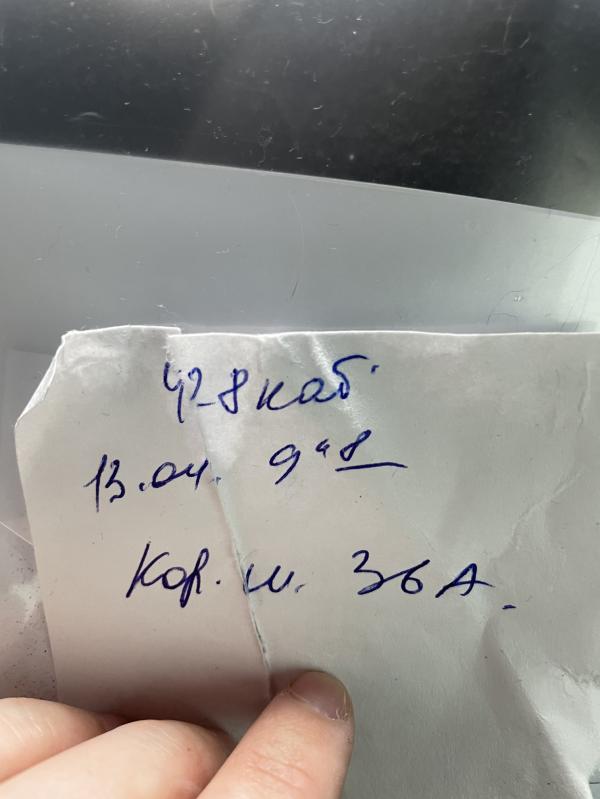 428 каб.
13.04. 9
Кор. ш. 36 А.